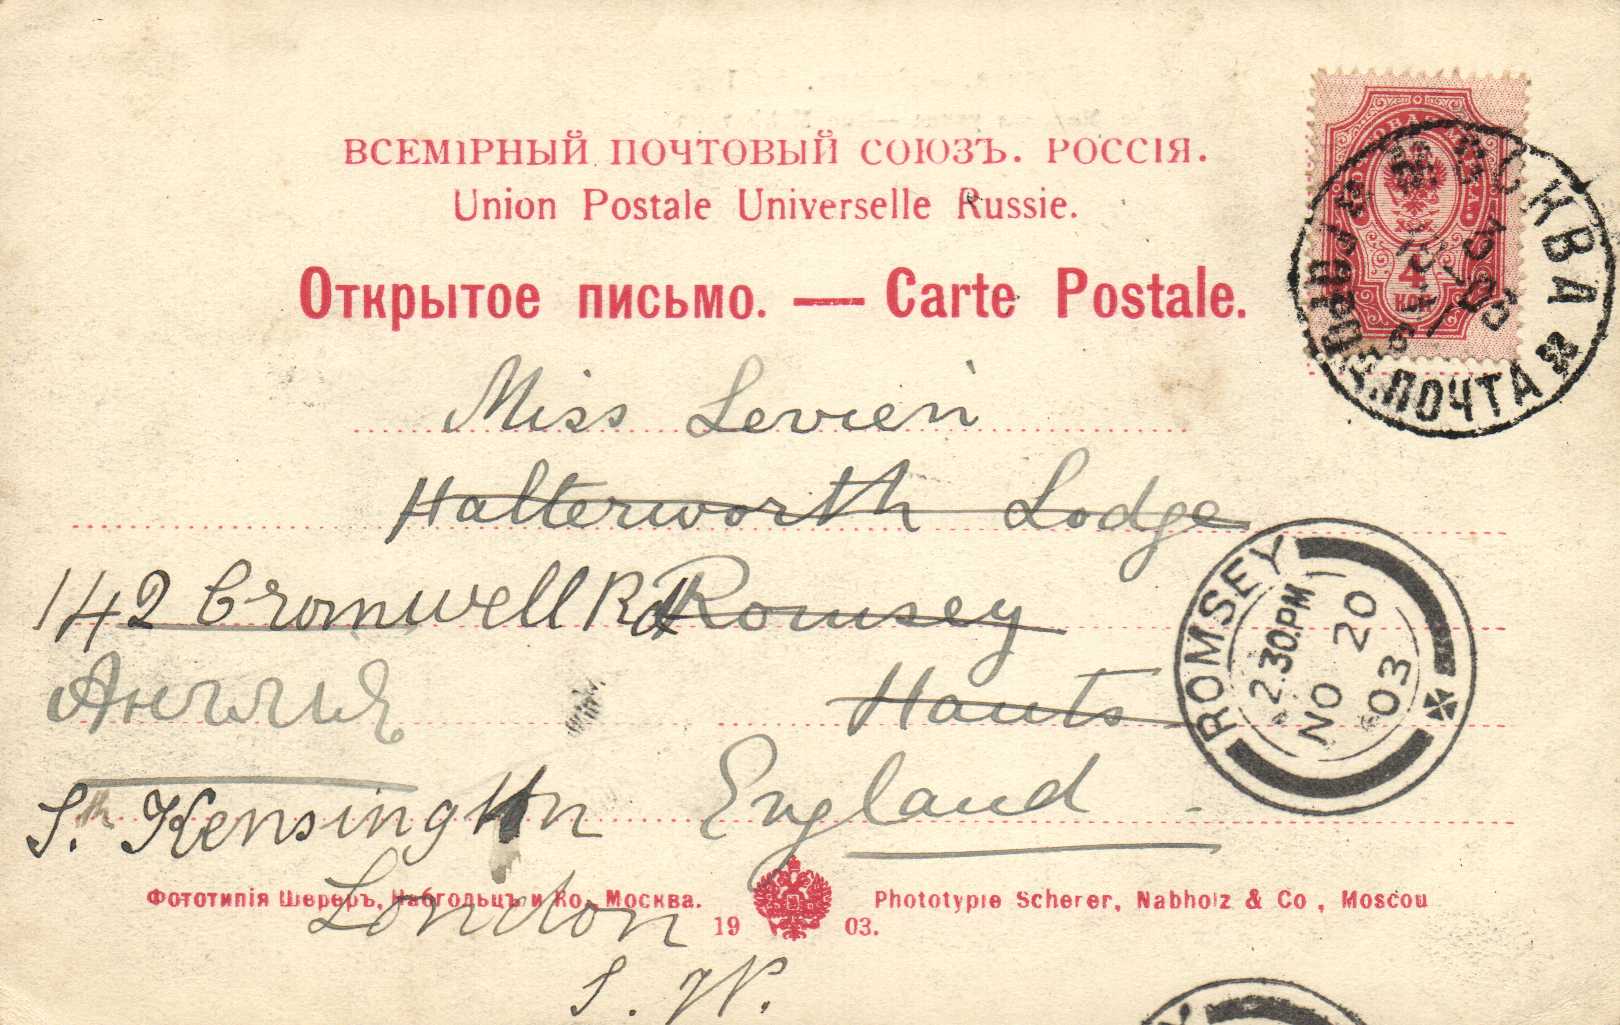 ВСЕМІРНЫЙ ПОЧТОВЫЙ СОЮЗЪ. РОССІЯ.
Union Postale Universelle Russie.
Открытое письмо. — Carte Postale.
4
КОП
МОСКВА
ПОЧТА
Miss Levien
Halterworth Lodge
142 Cromwell Rd Romsey
Англия Hants
Sth Kensington England
London
S. W.
ROMSEY
2.30.PM
NO 20
03
Фототипія Шереръ, Набгольцъ и Ко, Москва.
1903.
Phototypie Scherer, Nabholz & Co, Moscou